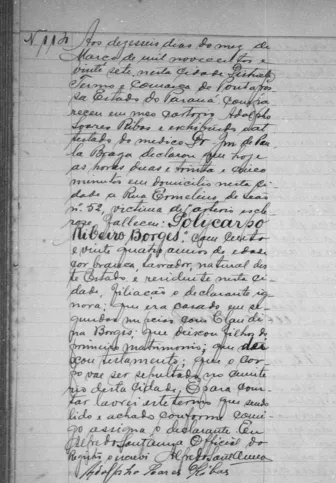 N. 113
Aos dezesseis dias do mez de
Março de mil novecentos e
vinte sete, nesta cidade
Termo e comarca de Ponta Gros
sa Estado do Paraná, compa
receu em meu cartorio Adolpho
Soares Ribas e exhibindo um at
testado do medico Dr
Braga declarou que hoje
as horas duas e trinta e cinco
minutos em domicilio nesta ci
dade a Rua
nº 52, victima de arterio escle
rose, falleceu: Polycarpo
Ribeiro Borges, com cento
e vinte quatro annos de edade
cor branca, lavrador, natural des
te Estado e residente nesta ci
dade, filiação o declarante ig
nora; que era casado em se
gundas nupcias com Claudi
na Borges; que deixou filhos do
primeiro matrimonio; que não
testamento; que o cor
po vae ser sepultado no cemite
rio desta cidade. E para cons
tar lavrei este termo que sendo
lido e achado conforme comi
go assigna o declarante. Eu
Alfredo Sant'Anna Official do
Registro o escrevi Alfredo Sant'Anna
Adolpho Soares Ribas